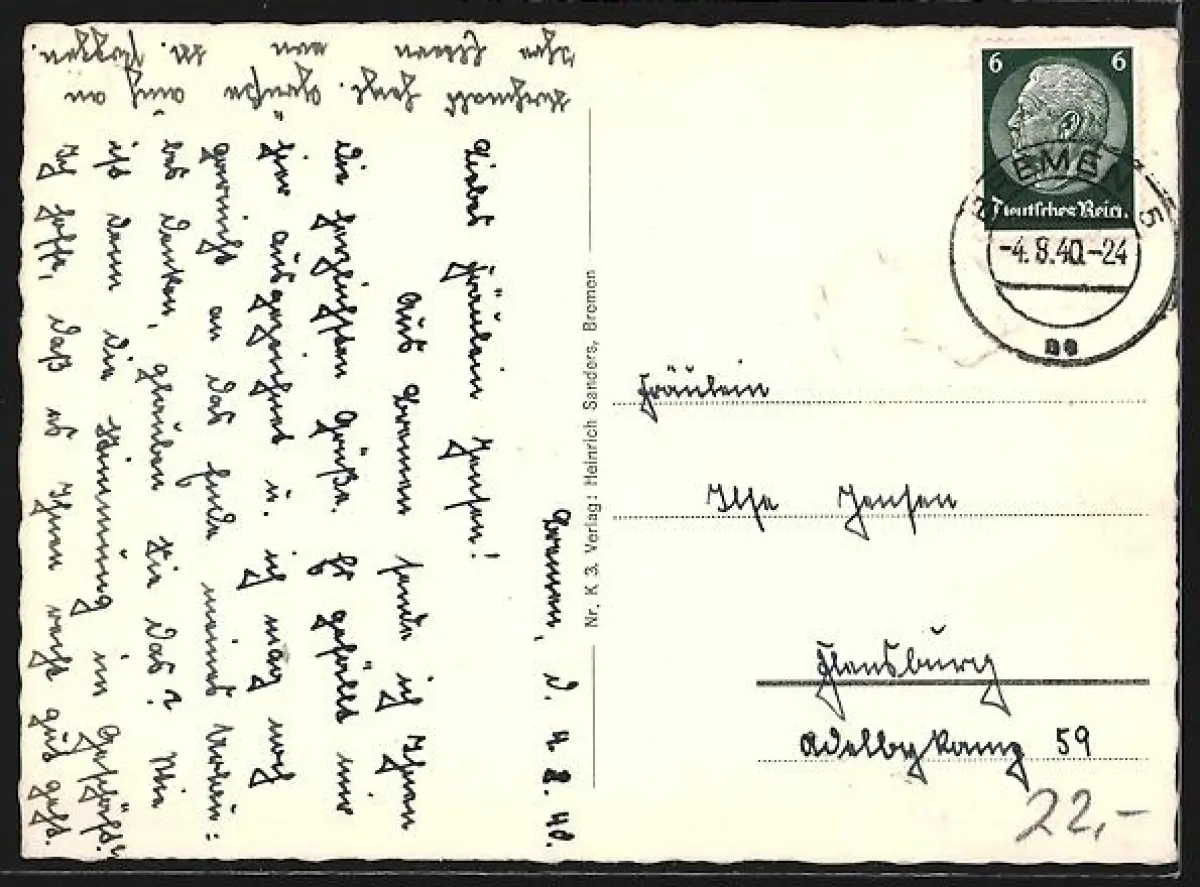 Bremen, d. 4. 8. 40.
Liebes Fräulein Jensen!
Aus Bremen sende ich Ihnen
die herzlichsten Grüße. Es gefällt mir
hier ausgezeichnet u. ich mag noch
garnicht an das Ende meines Urlau:
bes denken, glauben Sie das? Wie
ist denn die Stimmung im Geschäft?
Ich hoffe, daß es Ihnen recht gut geht.
Nochmals herzl. Grüße auch an
Ihre Eltern von
6 6
Deutsches Reich
BREMEN 5
-4.8.40.-24
Nr. K 3. Verlag: Heinrich Sanders, Bremen
Fräulein
Ilse Jensen
Flensburg
Adelbykamp 59
22,-